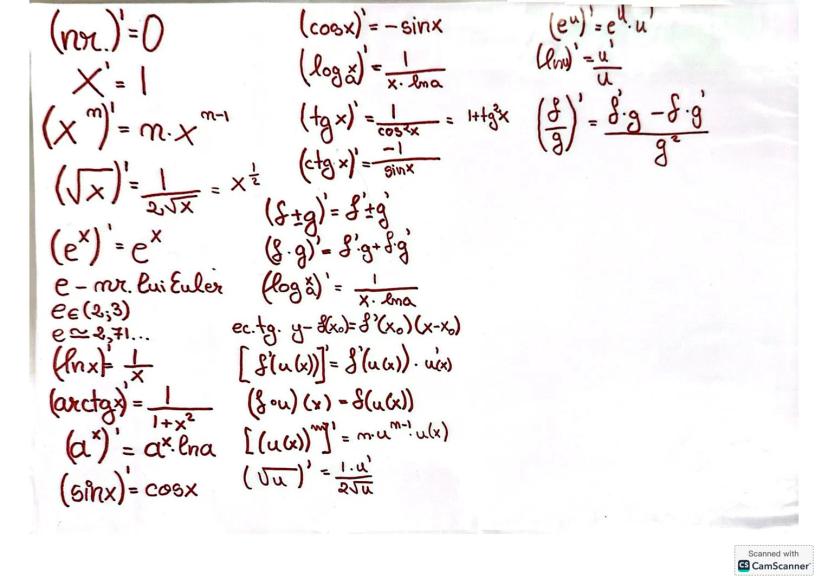 (nr.)' = 0
x' = 1
(x^m)' = m·x^{m-1}
(√x)' = 1/(2√x) = x^{1/2}
(e^x)' = e^x
e - nr. lui Euler
e ∈ (2;3)
e ≃ 2,71...
(ln x)' = 1/x
(arctg x)' = 1/(1+x²)
(a^x)' = a^x · ln a
(sin x)' = cos x
(cos x)' = -sin x
(log_a^x)' = 1/(x·ln a)
(tg x)' = 1/cos²x = 1+tg²x
(ctg x)' = -1/sin x
(f ± g)' = f' ± g'
(f·g)' = f'·g + f·g'
(log_a^x)' = 1/(x·ln a)
ec. tg. y - f(x₀) = f'(x₀)(x-x₀)
[f(u(x))]' = f'(u(x)) · u'(x)
(f∘u)(x) = f(u(x))
[(u(x))^m]' = m·u^{m-1}·u(x)
(√u)' = 1·u'/(2√u)
(e^u)' = e^u · u'
(ln u)' = u'/u
(f/g)' = (f'·g - f·g')/g²
Scanned with
CS CamScanner